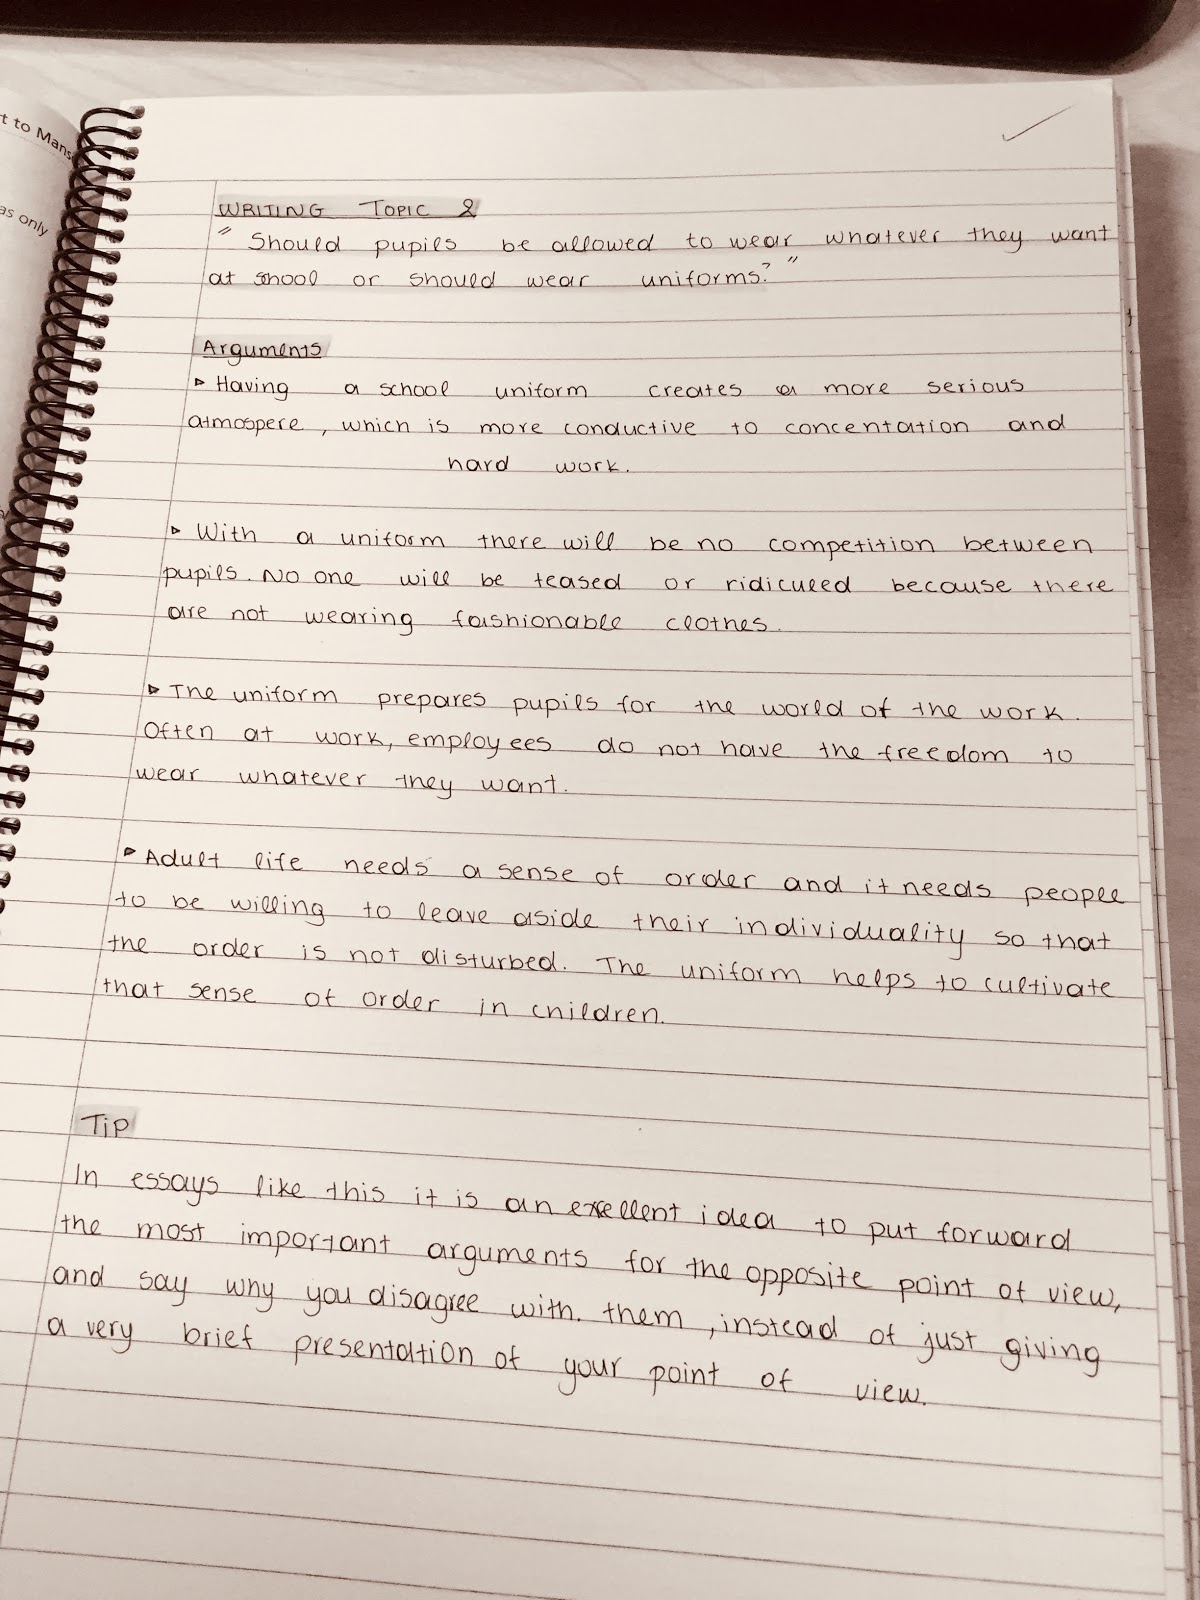 t to Mans
as only
WRITING TOPIC 2
" Should pupils be allowed to wear whatever they want
at shool or should wear uniforms? "
Arguments
▹ Having a school uniform creates a more serious
atmospere, which is more conductive to concentation and
hard work.
▹ With a uniform there will be no competition between
pupils. No one will be teased or ridiculed because there
are not wearing fashionable clothes.
▹ The uniform prepares pupils for the world of the work.
Often at work, employees do not have the freedom to
wear whatever they want.
▹ Adult life needs a sense of order and it needs people
to be willing to leave aside their individuality so that
the order is not disturbed. The uniform helps to cultivate
that sense of order in children.
Tip
In essays like this it is an excellent idea to put forward
the most important arguments for the opposite point of view,
and say why you disagree with. them, instead of just giving
a very brief presentation of your point of view.